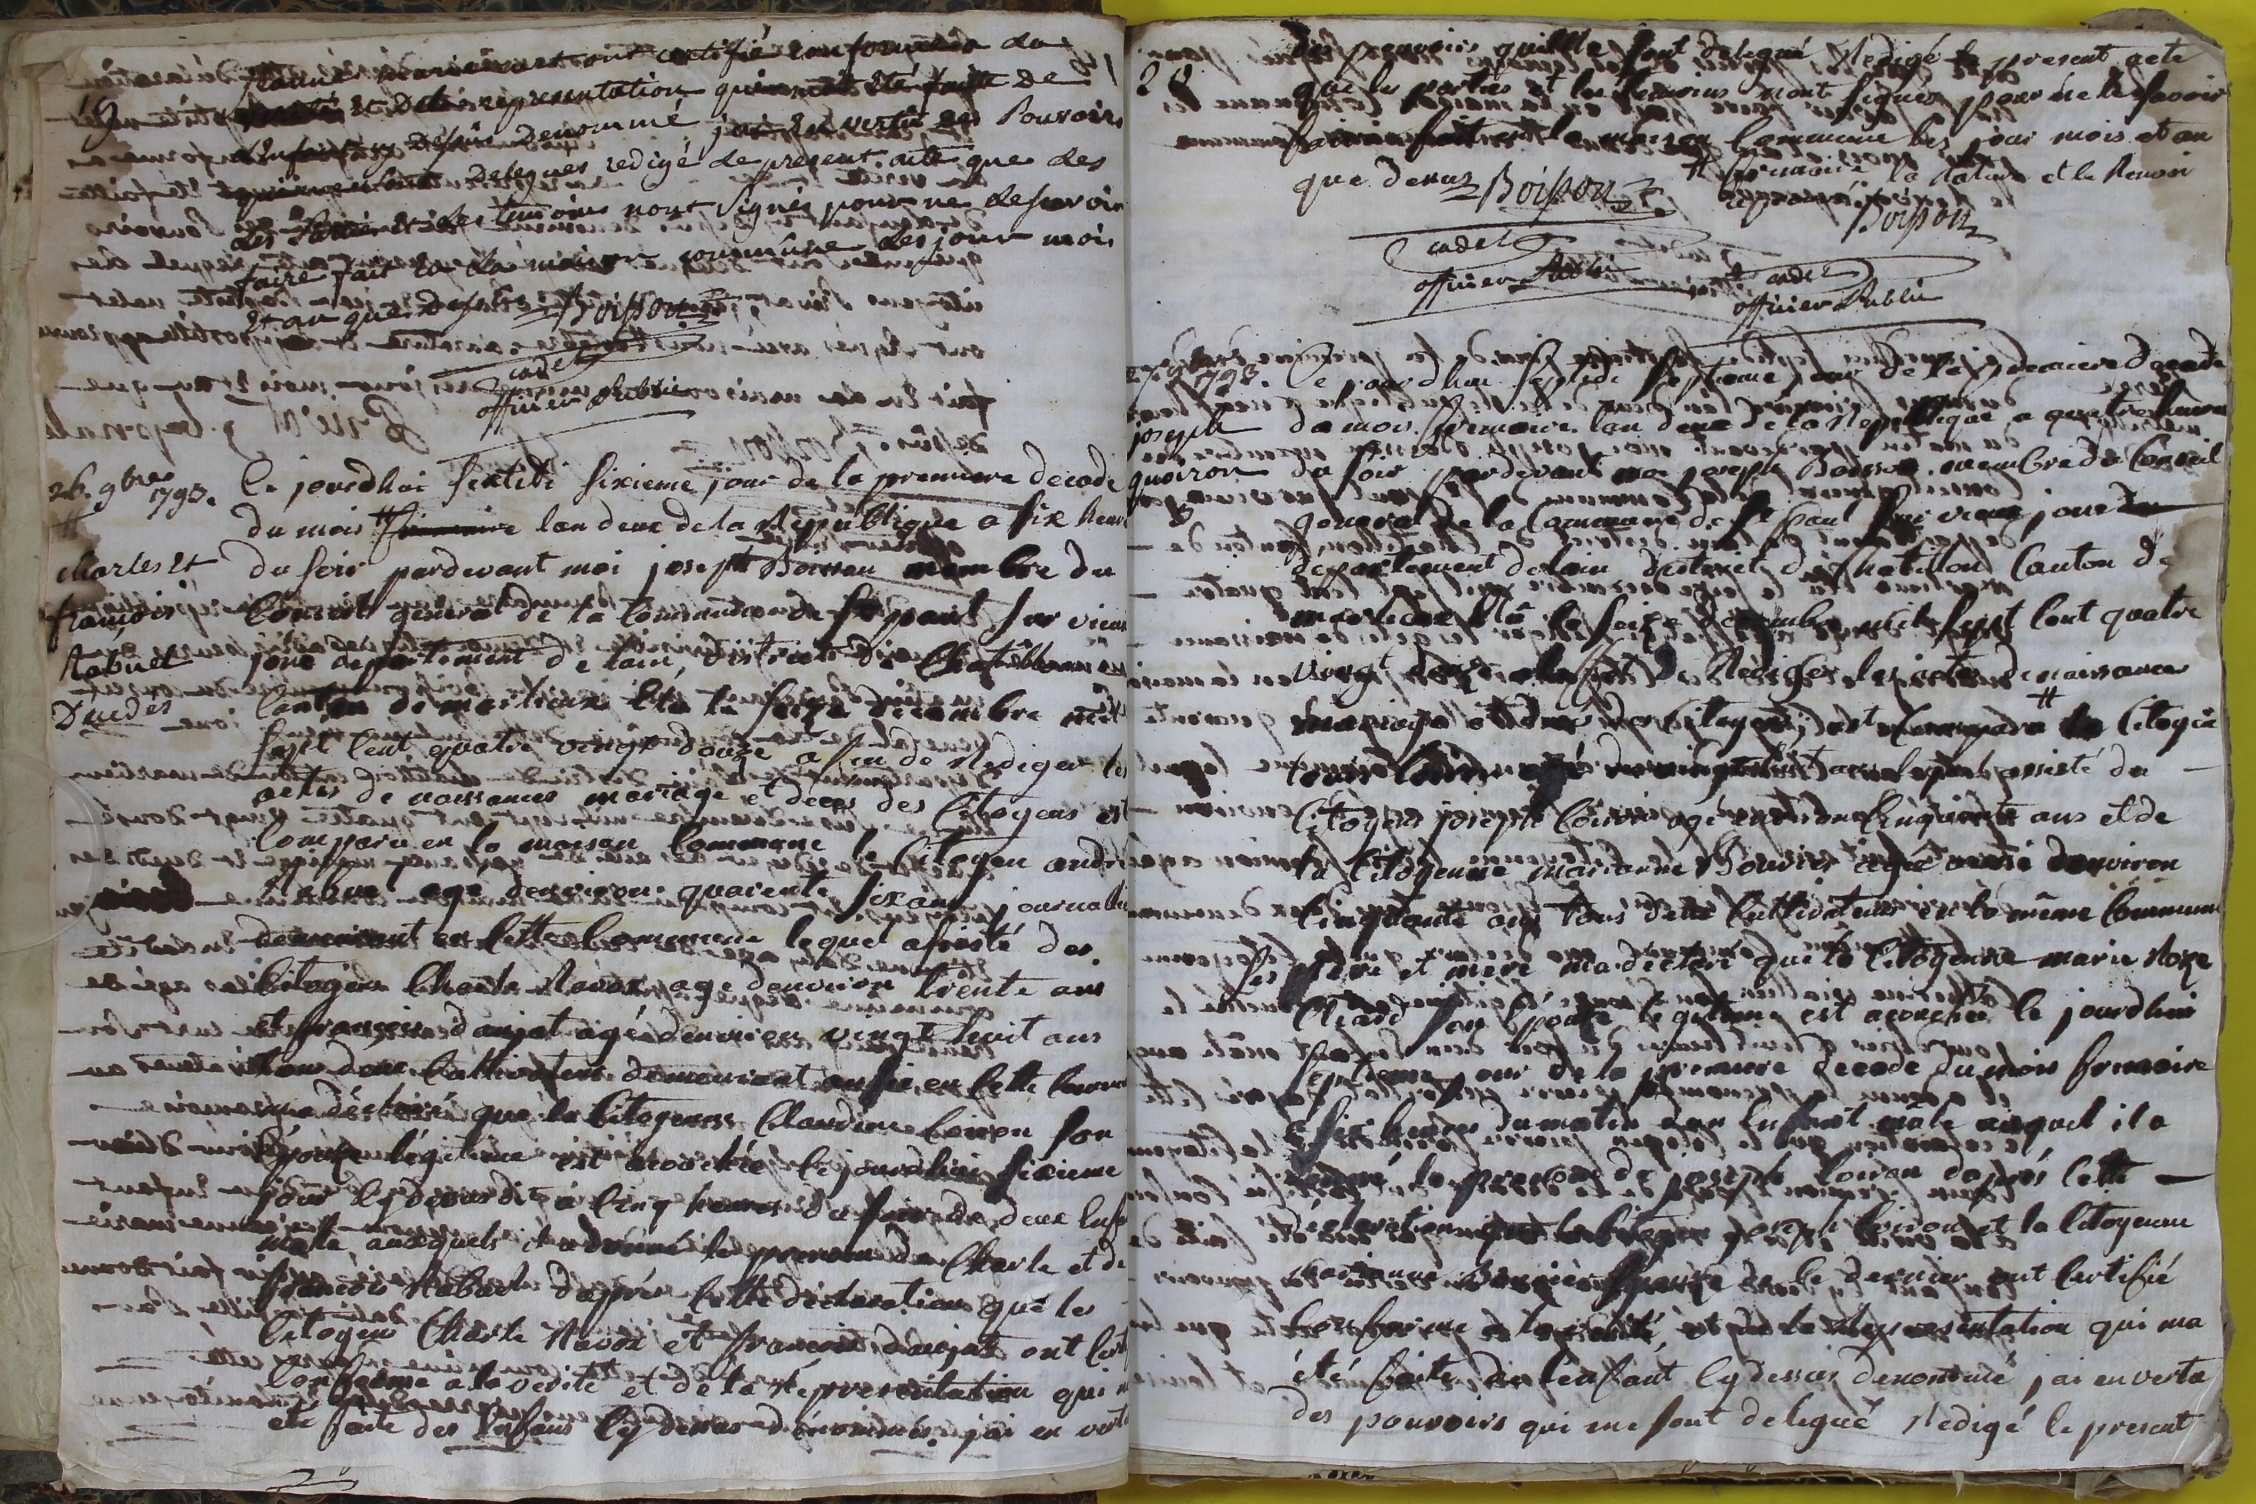 19
ont certifié conforme a la
et de la representation qui m'ont été faitte de
denommé j'ai en vertu des Pouvoirs
delegués redigé le present acte que les
les temoins nont signés pour ne le scavoir
faire fait en la maison commune les jour mois
et an que dessus Boisson
cadet
officier Public
26. 9bre 1793.
Charles et
françois
Rabuel
Duedes
Ce jourdhui Sextidi Sixieme jour de la premiere decade
du mois # frimaire lan deux de la Republique a six heure
du soir pardevant moi joseph Boisson membre du
Conseil general de la Commune de St paul sur vieux
jonc departement de lain, district de Chatillon
Canton de marlieux Elû le seize decembre mil
sept Cent quatre vingt douze a fin de Rediger les
actes de naissances mariage et deces des Citoyens est
Comparu en la maison Commune le Citoyen andré
Rabuel age denviron quarente six ans journalie
demeurant en Cette Commune lequel assisté des
Citoyens Charle Ravoz age denviron trente ans
et françois daujat agé denviron vingt huit ans
tous deux Cultivateurs demeurant aussi en Cette Commune
ma déclaré que la Citoyenne Claudine Coiron son
épouse légitime est acouchée le jourdhui sixieme
jour Cy dessus dit à Cinq heures du soir de deux Enf
male, auxquels il a donné le prenom de Charle et de
françois Rabuel daprés Cette déclaration que les
Citoyens Charle Ravoz et françois daujat ont Certi
Conforme a la verité et de la Representation qui m
eté faite des Enfans Cy dessus dénommés jai en vertu
20
des pouvoirs qui me sont delegué Redigé le present acte
que les parties et les temoins nont signés pour ne le savoir
faire fait en la maison Commune les jour mois et an
que dessus Boisson
# frimaire la Rature et le Renvoi
Boisson
cadet
officier Public
cadet
officier Public
27. 9bre 1793.
joseph
quoiron
Ce jourdhui Septidi Septieme jour de la premiere Decade
du mois frimaire lan deux de la Republique a quatre heures
du soir pardevant moi joseph Boisson membre du Conseil
general de la Commune de St paul sur vieux jonc
departement de lain district de Chatillon Canton de
marlieux Elû le seize decembre mil sept Cent quatre
vingt douze a fin de Rediger les actes de naissances
mariage et deces des Citoyens est Comparu # le Citoyen
agé de vingt huit ans lequel assisté du
Citoyen joseph Coiron agé environ Cinquante ans et de
la Citoyenne marianne Bouvier agé aussi denviron
Cinquante ans tous deux Cultivateurs en la même Commune
ses pere et mere ma déclaré que la Citoyenne marie Roze
son épouse legitime est acouchée le jourdhui
septieme jour de la premiere decade du mois frimaire
a six heures du matin dun Enfant male auquel il a
donné le prenom de joseph Coiron daprés Cette
declaration que le Citoyen joseph Coiron et la Citoyenne
marianne Bouvier épouse de Ce dernier ont Certifié
Conforme a la verité, et de la Representation qui ma
été faite de lenfant Cy dessus denommé jai en vertu
des pouvoirs qui me sont delegué Redigé le present